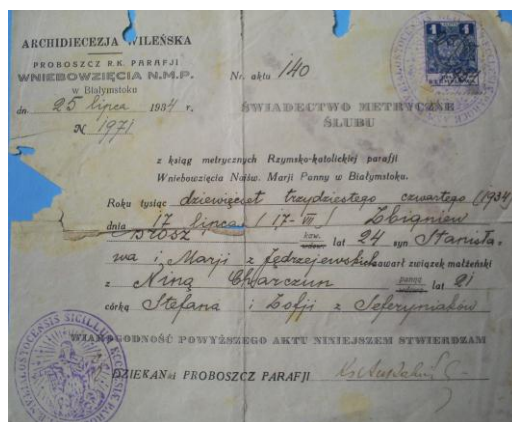 ARCHIDIECEZJA WILEŃSKA
PROBOSZCZ R.K. PARAFJI
WNIEBOWZIĘCIA N.M.P.
w Białymstoku
dn 25 lipca 1934 r.
N 1971
Nr. aktu 140
1 1
ŚWIADECTWO METRYCZNE
ŚLUBU
z ksiąg metrycznych Rzymsko-katolickiej parafji
Wniebowzięcia Najśw. Marji Panny w Białymstoku.
Roku tysiąc dziewięćset trzydziestego czwartego (1934)
dnia 17 lipca (17-VII) Zbigniew
Brósz kaw. wdow. lat 24 syn Stanisła-
wa i Marji z Jędrzejewskich zawarł związek małżeński
z Niną Charczun panną lat 21
córką Stefana i Zofji z Seferyniaków
WIAROGODNOŚĆ POWYŻSZEGO AKTU NINIEJSZEM STWIERDZAM
DZIEKAN i PROBOSZCZ PARAFJI